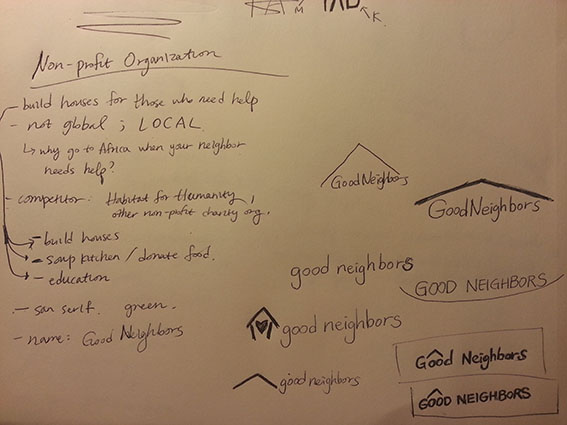 M
K.
Non-profit Organization
- build houses for those who need help
- not global ; LOCAL.
↳ why go to Africa when your neighbor
needs help?
- competitor: Habitat for Humanity,
other non-profit charity org.
- build houses
- soup kitchen / donate food.
- education
- san serif. green.
- name: Good Neighbors
GoodNeighbors
GoodNeighbors
good neighbors
GOOD NEIGHBORS
good neighbors
good neighbors
Good Neighbors
GOOD NEIGHBORS